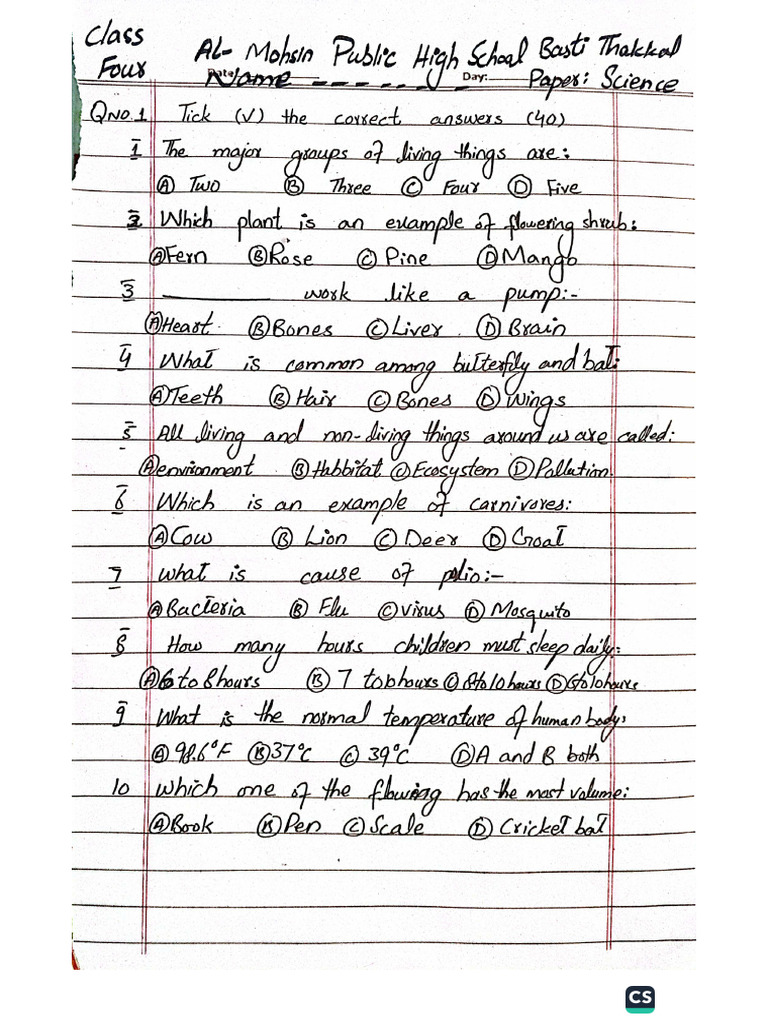 Class Four
AL- Mohsin Public High School Basti Thakkal
Date: Name Day: Paper: Science
QNO.1 Tick (√) the correct answers (40)
1 The major groups of living things are:
(A) Two (B) Three (C) Four (D) Five
2 Which plant is an example of flowering shrub:
(A) Fern (B) Rose (C) Pine (D) Mango
3 __________ work like a pump:-
(A) Heart (B) Bones (C) Liver (D) Brain
4 What is common among butterfly and bat:
(A) Teeth (B) Hair (C) Bones (D) Wings
5 All living and non-living things around us are called:
(A) environment (B) Habbitat (C) Ecosystem (D) Pollution
6 Which is an example of carnivores:
(A) Cow (B) Lion (C) Deer (D) Goat
7 What is cause of polio:-
(A) Bacteria (B) Flu (C) virus (D) Mosquito
8 How many hours children must sleep daily:
(A) 6 to 8 hours (B) 7 to hours (C) 8 to 10 hours (D) 6 to 10 hours
9 What is the normal temperature of human body:
(A) 98.6°F (B) 37°C (C) 39°C (D) A and B both
10 Which one of the flowing has the most volume:
(A) Book (B) Pen (C) Scale (D) Cricket bat
CS